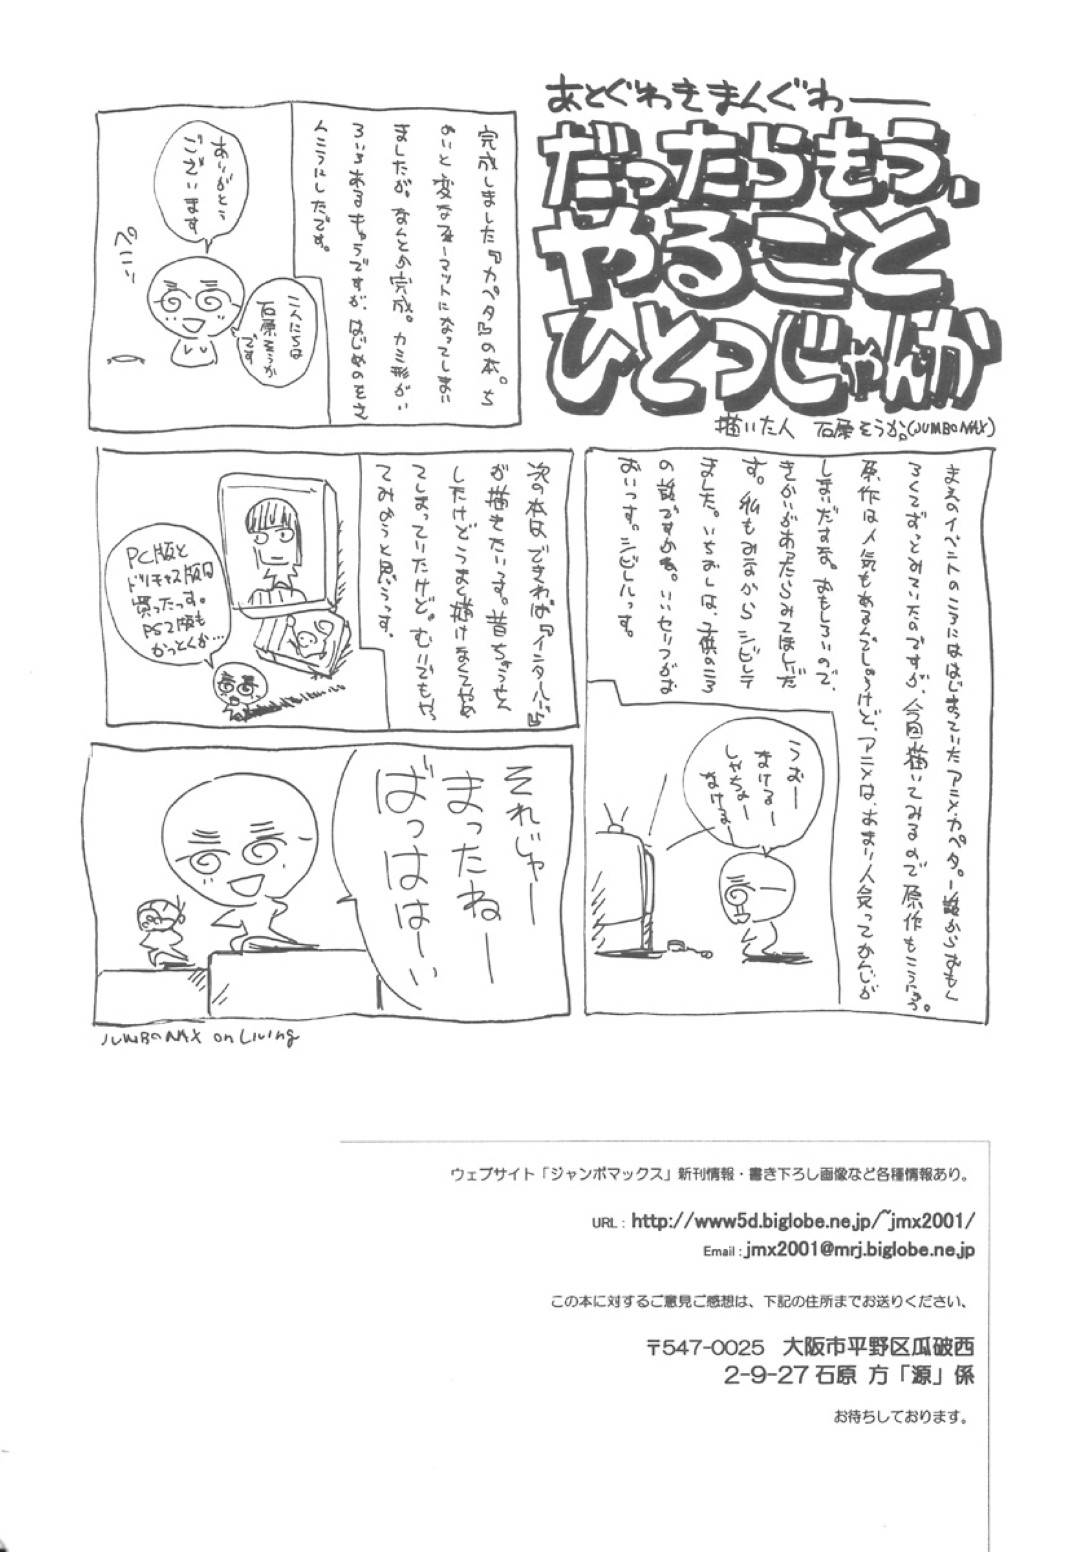 あとぐわきまんぐわー
だったらもう、
やること
ひとつじゃんか
描いた人 石原そうか。(JUMBOMAX)
完成しました『カペタ』の本。ち
めいと変なフォーマットになってしまい
ましたが、なんとか完成。カミ形がい
ろいろあるキャラですが、はじめのをさ
んこうにしたです。
ありがとう
ございます
こんにちは
石原そうか
です
ぺこっ
まえのイベントのころにははじまっていたアニメ・カペタ。一話からおもし
ろくてずっとみていたのですが、今回描いてみるので原作もこうにゅう。
原作は人気もあるんでしょうけど、アニメは、あまり人気ってかんじが
しまいだすな。おもしろいので、
きかいがあったらみてほしいだ
す。私もみながらシビレテ
ました。いちおしは、子供のころ
の話ですかね。いいセリフがお
おいっす。シビレルっす。
うおー
なけるー
しゃちょー
なけるー
次の本はできれば『インタールード』
が描きたいっす。昔ちょうせん
したけどうまく描けなくてやめ
てしまっていたけど。むりでもやっ
てみようと思うっす。
PC版と
ドリキャス版は
買ったっす。
PS2版も
かっとくか…
それじゃー
まったねー
ばっはは～い
JUMBOMAX on Living
ウェブサイト「ジャンボマックス」新刊情報・書き下ろし画像など各種情報あり。
URL : http://www5d.biglobe.ne.jp/~jmx2001/
Email : jmx2001@mrj.biglobe.ne.jp
この本に対するご意見ご感想は、下記の住所までお送りください、
〒547-0025 大阪市平野区瓜破西
2-9-27 石原 方「源」係
お待ちしております。